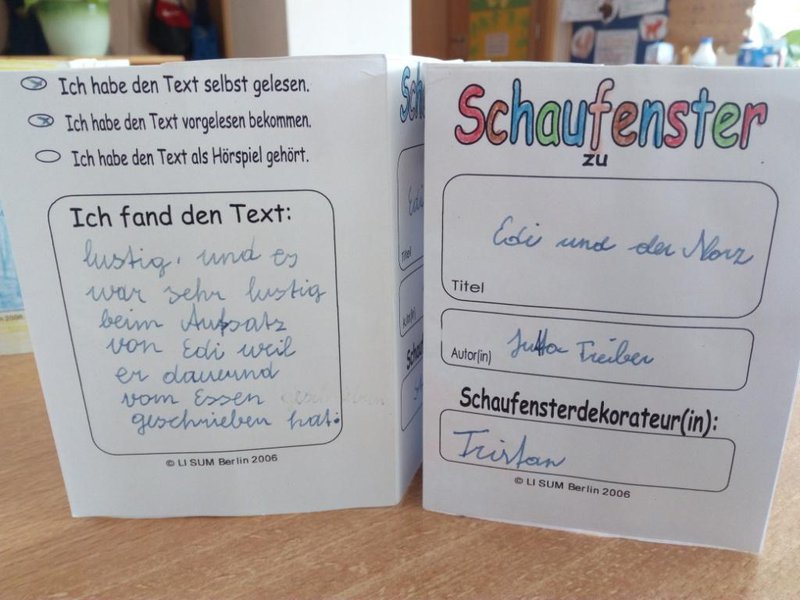 Ich habe den Text selbst gelesen.
Ich habe den Text vorgelesen bekommen.
Ich habe den Text als Hörspiel gehört.
Ich fand den Text:
lustig. und es
war sehr lustig
beim Aufsatz
von Edi weil
er dauernd
vom Essen
geschrieben hat.
© LI SUM Berlin 2006
Sch
Edi
Titel
Autor(in)
Schau
Schaufenster
zu
Edi und der Norz
Titel
Autor(in) Jutta Treiber
Schaufensterdekorateur(in):
Tristan
© LI SUM Berlin 2006